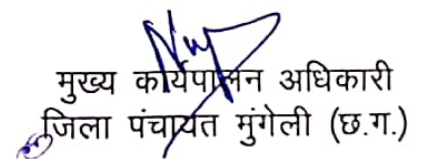 मुख्य कार्यपालन अधिकारी
जिला पंचायत मुंगेली (छ.ग.)